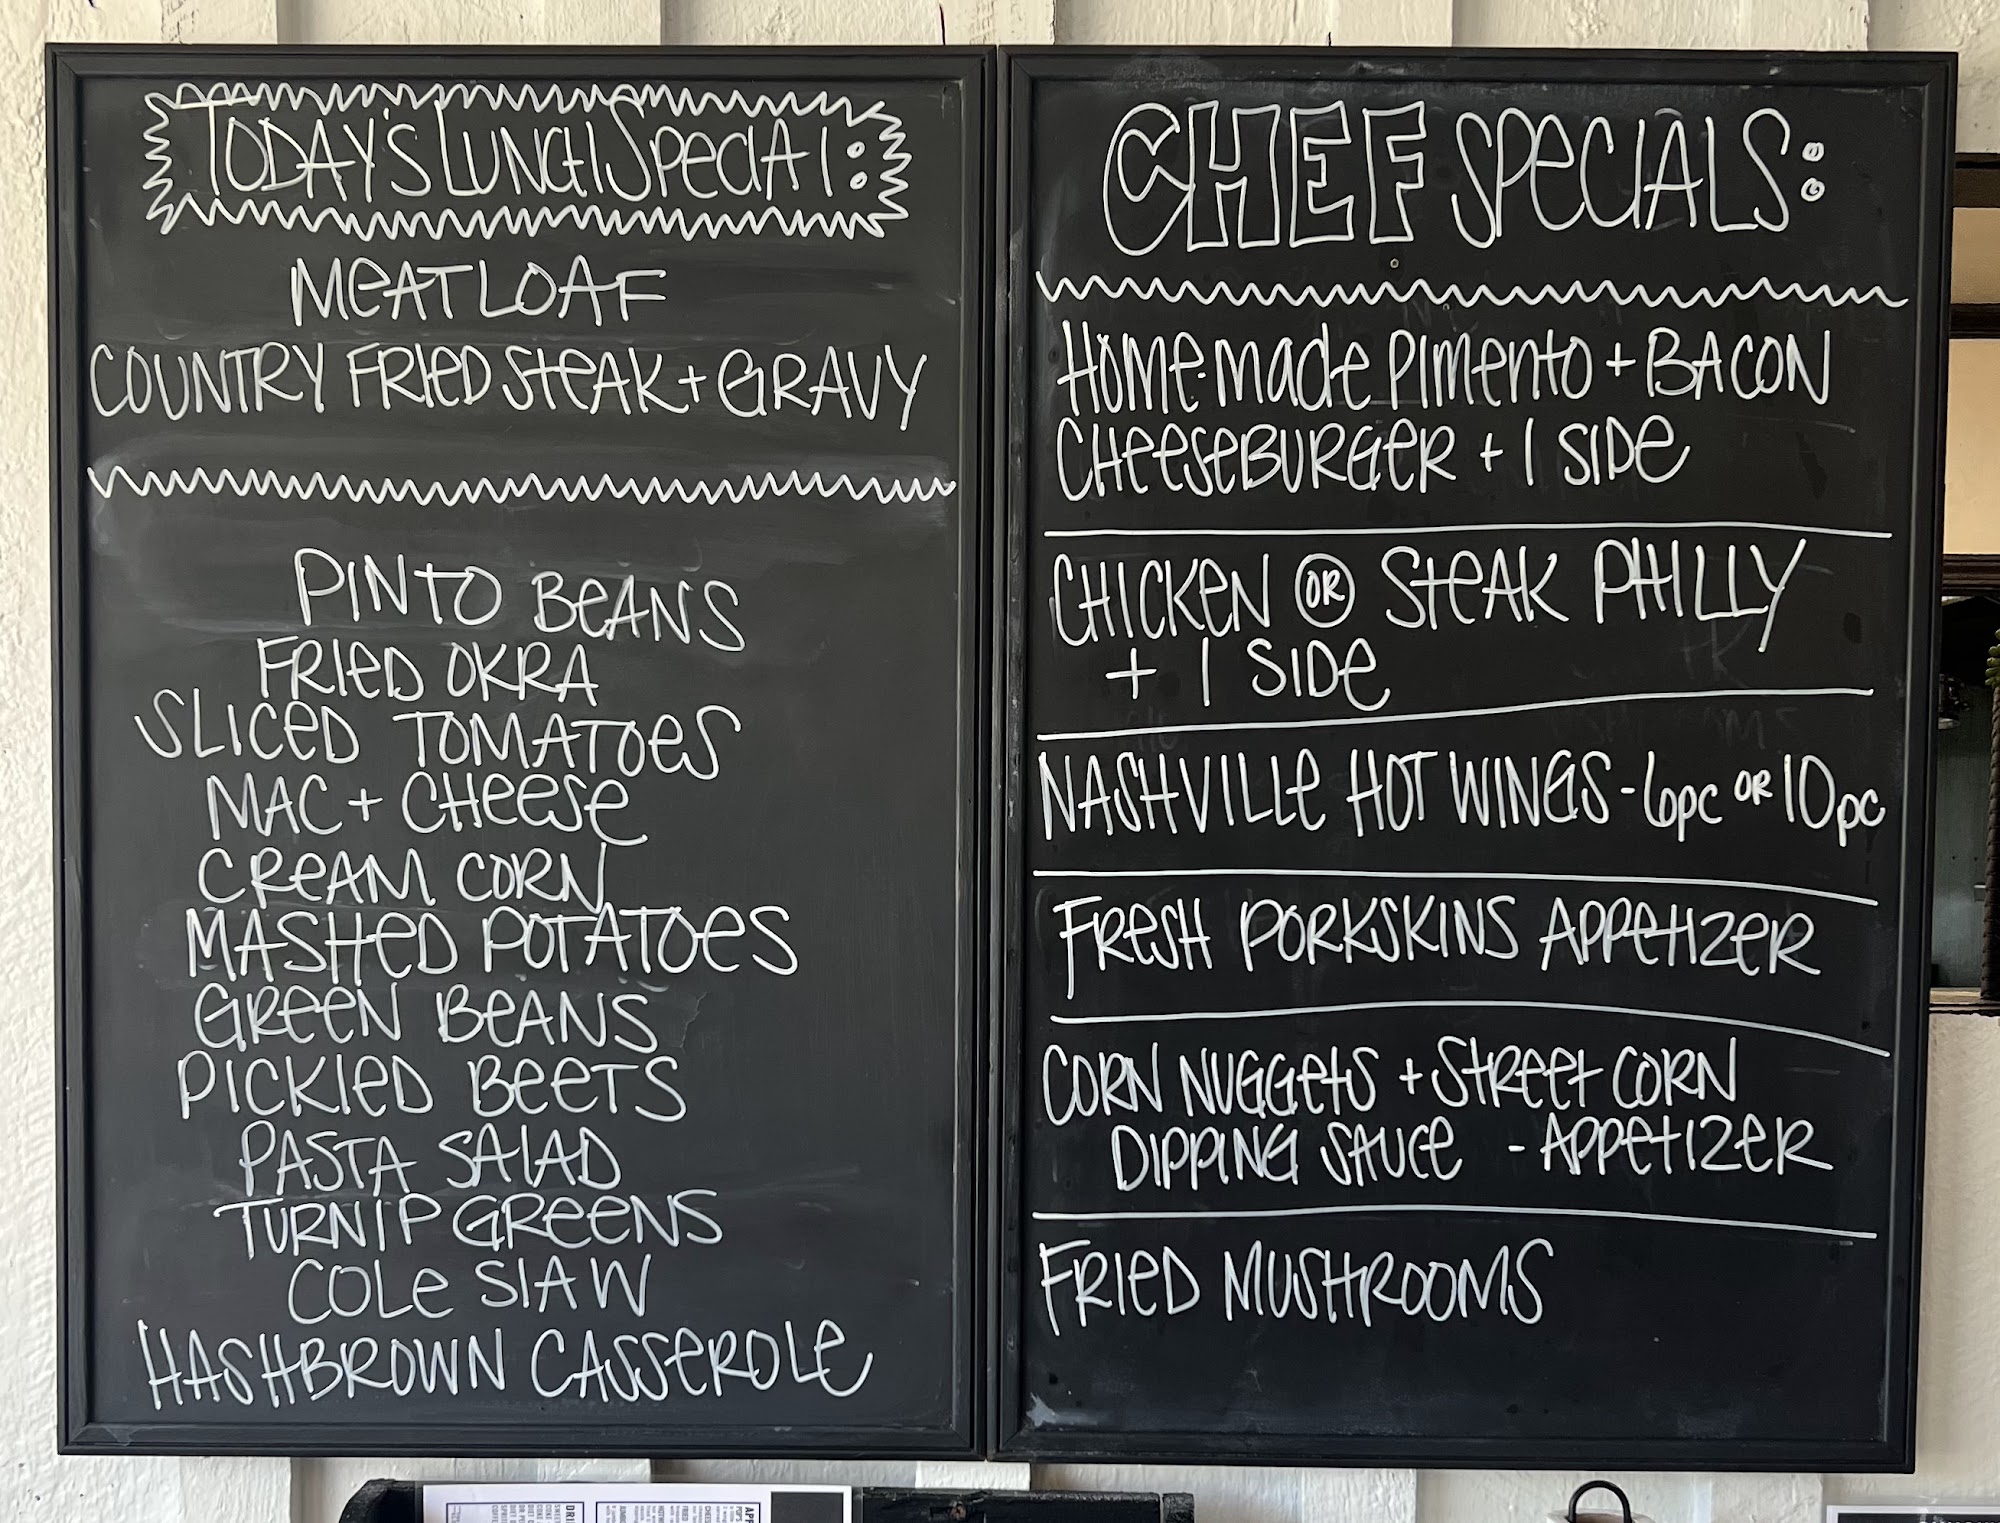 TODAY'S LUNCH SPECIAL:
MEATLOAF
COUNTRY FRIED STEAK + GRAVY
PINTO BEANS
FRIED OKRA
SLICED TOMATOES
MAC + CHEESE
CREAM CORN
MASHED POTATOES
GREEN BEANS
PICKLED BEETS
PASTA SALAD
TURNIP GREENS
COLE SLAW
HASHBROWN CASSEROLE
CHEF SPECIALS:
HOMEMADE PIMENTO + BACON
CHEESEBURGER + 1 SIDE
CHICKEN OR STEAK PHILLY
+ 1 SIDE
NASHVILLE HOT WINGS - 6pc OR 10pc
FRESH PORKSKINS APPETIZER
CORN NUGGETS + STREET CORN
DIPPING SAUCE - APPETIZER
FRIED MUSHROOMS